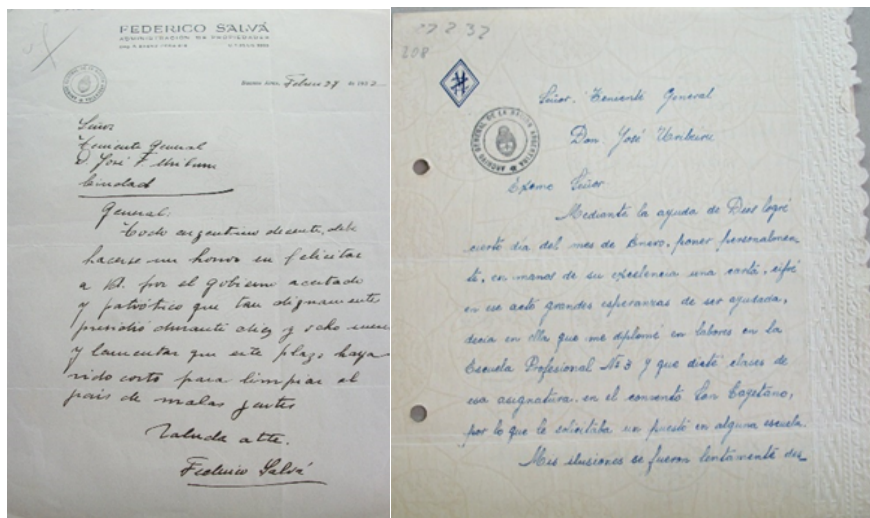 FEDERICO SALVÁ
ADMINISTRACIÓN DE PROPIEDADES
Buenos Aires, Febrero 27 de 1932
Señor
Teniente General
D. José F. Uriburu
Ciudad
General:
Todo argentino decente, debe
hacerse un honor en felicitar
a Vd. por el gobierno acertado
y patriótico que tan dignamente
presidió durante diez y ocho meses
y lamentar que este plazo haya
sido corto para limpiar el
país de malas gentes
Saluda atte.
Federico Salvá
27 2 32
208
ARCHIVO GENERAL DE LA NACION ARGENTINA
Señor. Teniente General
Don José Uriburu
Exmo Señor.
Mediante la ayuda de Dios logré
cierto día del mes de Enero, poner personalmen
te, en manos de su excelencia una carta, cifré
en ese acto grandes esperanzas de ser ayudada,
decía en ella que me diplomé en labores en la
Escuela Profesional Nº 3 y que dicté clases de
esa asignatura, en el convento San Cayetano,
por lo que le solicitaba un puesto en alguna escuela.
Mis ilusiones se fueron lentamente des_